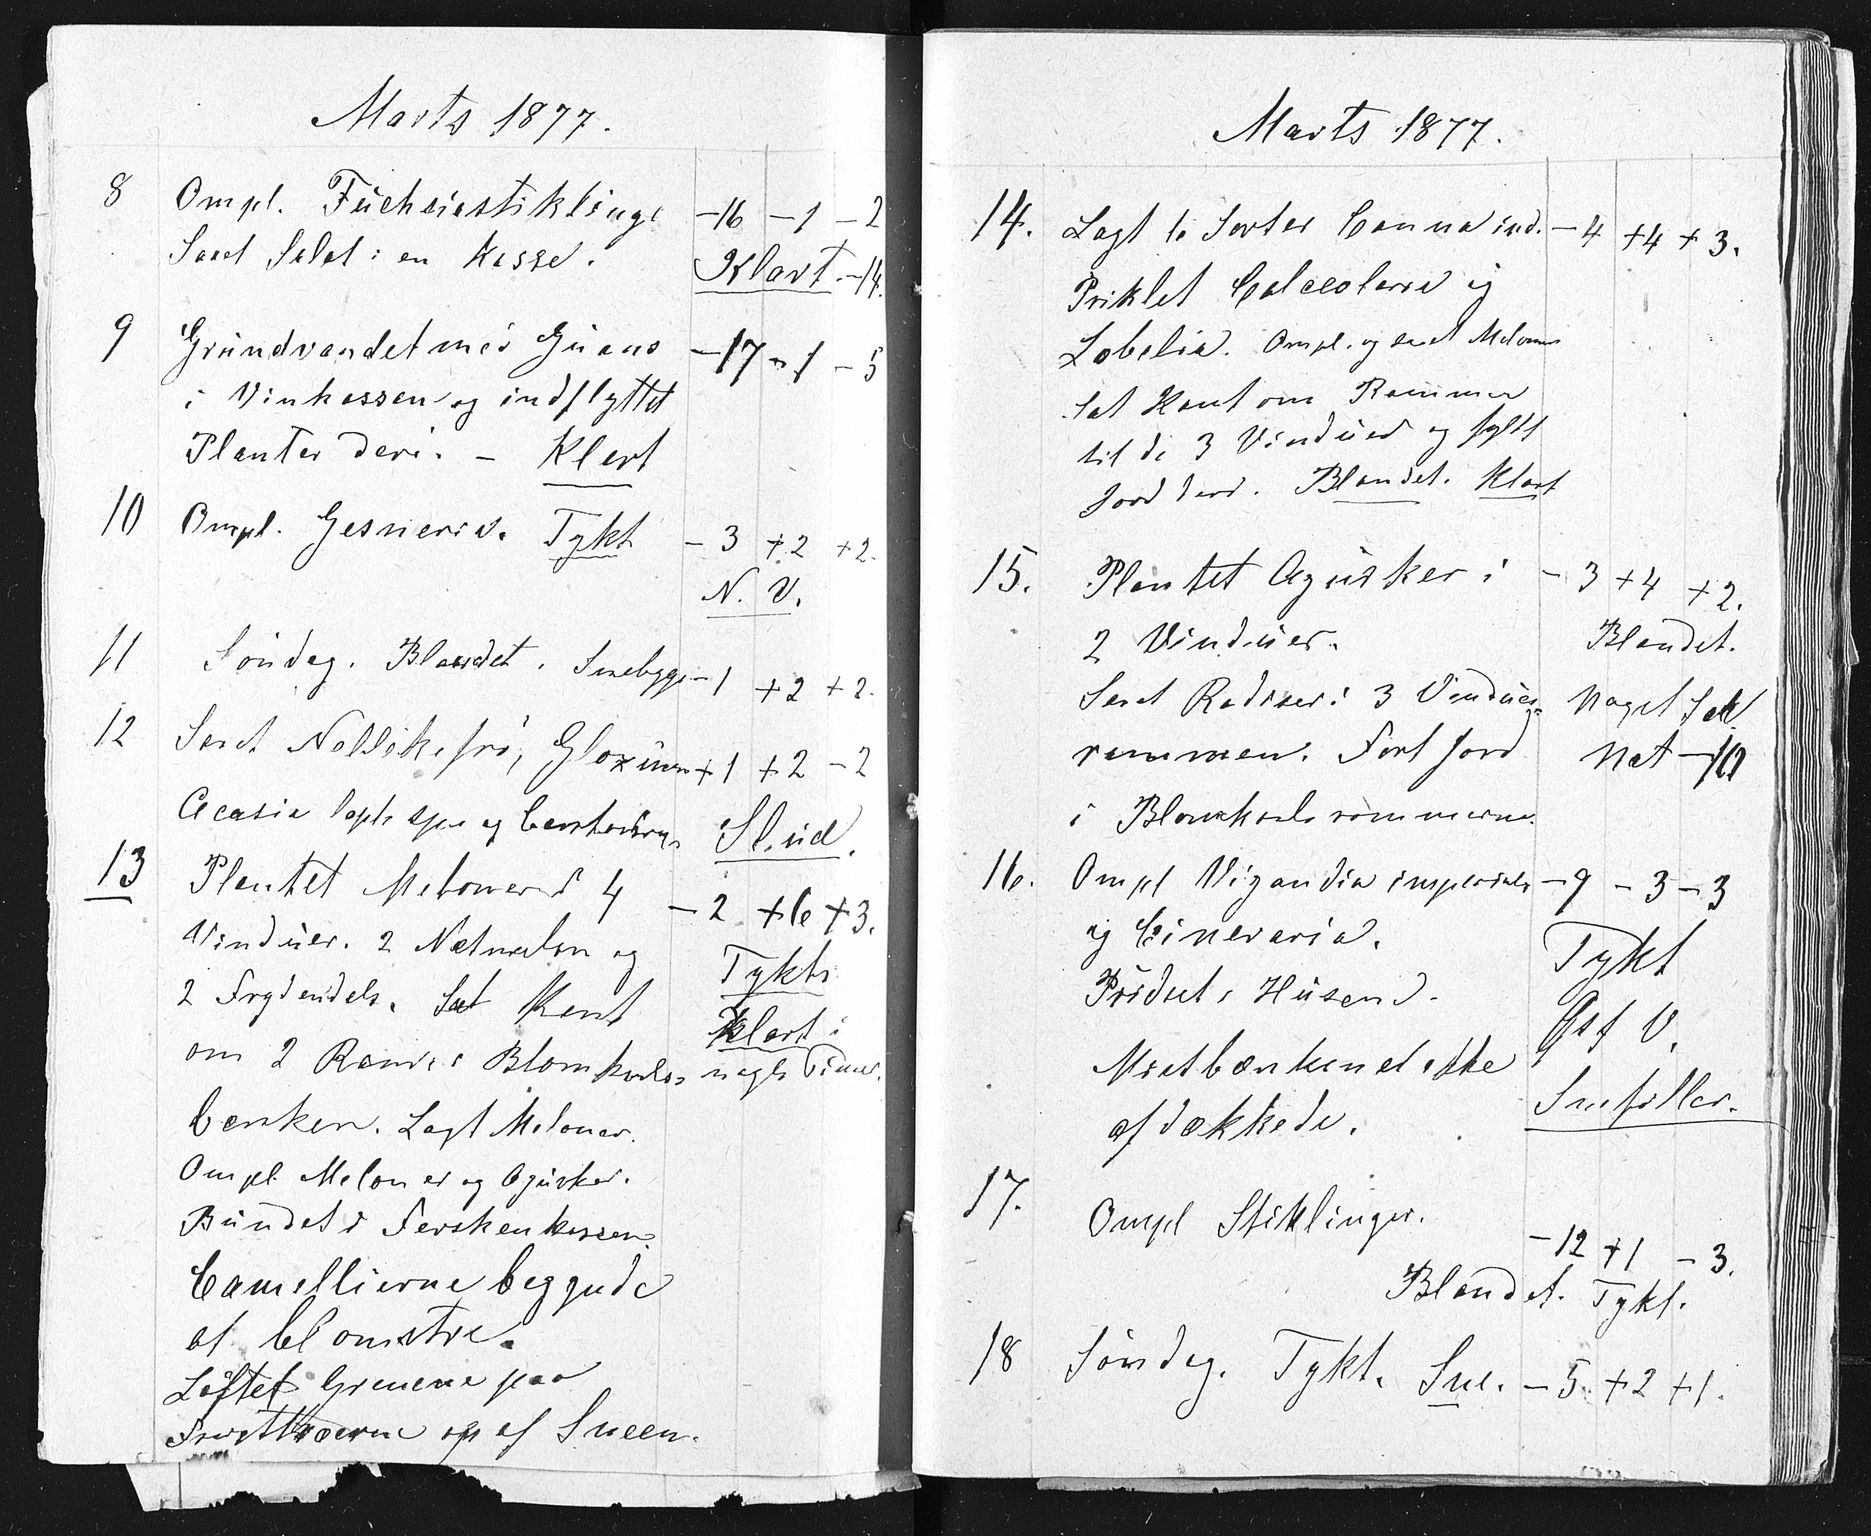 Marts 1877.
8 Ompl. Fuchsiastiklinge -16 -1 -2
Saaet Salat i en Kasse. Klart -14.
9 Grundvandet med Guano -17 -1 -5
i Vinkassen og indflyttet
Planter deri. - Klart
10 Ompl. Gesneria. Tykt -3 +2 +2.
N. V.
11 Søndag. Blandet. Snebyge -1 +2 +2.
12 Saaet Nellikefrø, Gloxinia +1 +2 -2
Acasia og Slud.
13 Plantet Meloner i 4 -2 +6 +3.
Vinduer. 2 Netmelon og Tykt.
2 Frydendels. Sat Kant Klart i
om 2 Ram i Blomkaals- nogle Timer.
bænken. Lagt Meloner.
Ompl. Meloner og Agurker.
Bundet i Ferskenkassen.
Camellierne begyndte
at blomstre.
Løftet Grenene paa
Frugttræerne op af Sneen.
Marts 1877.
14. Lagt 6 Sorter Canna ind. -4 +4 +3.
Priklet Calceolaria og
Lobelia. Ompl. og saaet Meloner
Sat Kant om Rammer
til de 3 Vinduer og fyldt
Jord deri. Blandet. Klart
15. Plantet Agurker i -3 +4 +2.
2 Vinduer. Blandet.
Saaet Radiser i 3 Vindues- Noget
rammen. Kørt Jord Nat -10
i Blomkaalsrammerne.
16. Ompl Vigandia imperialis -9 -3 -3
og Cineraria. Tykt
Pudset i Husene. Øst V.
Mistbænkene ikke Snefiller.
afdækkede.
17. Ompl Stiklinger.
-12 +1 -3.
Blandet. Tykt.
18 Søndag. Tykt. Sne. -5 +2 +1.